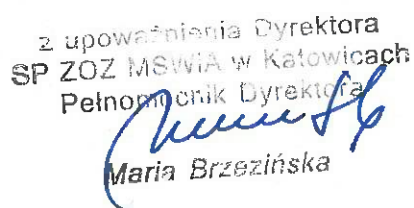 z upoważnienia Dyrektora
SP ZOZ MSWiA w Katowicach
Pełnomocnik Dyrektora
Maria Brzezińska